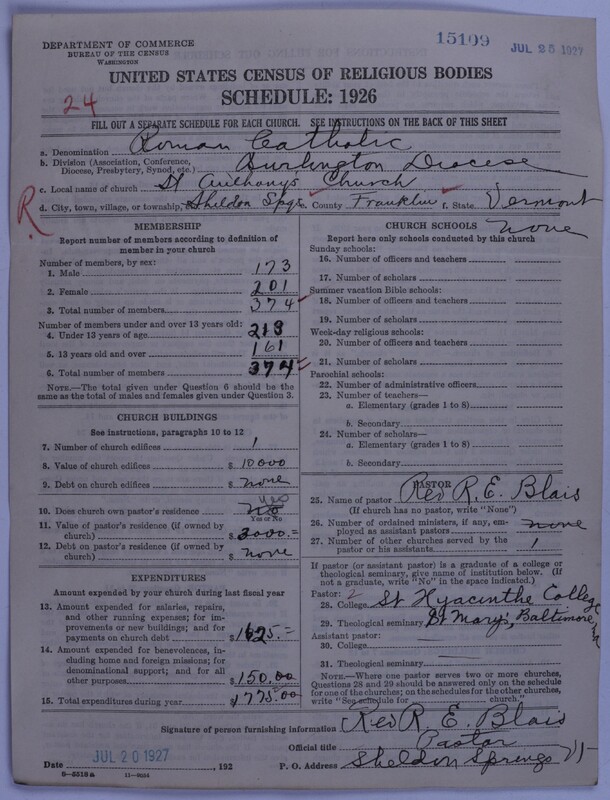 15109
JUL 25 1927
DEPARTMENT OF COMMERCE
BUREAU OF THE CENSUS
WASHINGTON
UNITED STATES CENSUS OF RELIGIOUS BODIES
SCHEDULE: 1926
24
FILL OUT A SEPARATE SCHEDULE FOR EACH CHURCH. SEE INSTRUCTIONS ON THE BACK OF THIS SHEET
a. Denomination Roman Catholic
b. Division (Association, Conference,
Diocese, Presbytery, Synod, etc.) Burlington Diocese
c. Local name of church St Anthony's Church
R
d. City, town, village, or township, Sheldon Spgs e. County Franklin f. State, Vermont
MEMBERSHIP
Report number of members according to definition of
member in your church
Number of members, by sex:
1. Male 173
2. Female 201
3. Total number of members 374
Number of members under and over 13 years old:
4. Under 13 years of age 213
5. 13 years old and over 161
6. Total number of members 374
NOTE.—The total given under Question 6 should be the
same as the total of males and females given under Question 3.
CHURCH BUILDINGS
See instructions, paragraphs 10 to 12
7. Number of church edifices 1
8. Value of church edifices $ 10000
9. Debt on church edifices $ none
10. Does church own pastor's residence No yes
Yes or No
11. Value of pastor's residence (if owned by
church) $ 3000.=
12. Debt on pastor's residence (if owned by
church) $ none
EXPENDITURES
Amount expended by your church during last fiscal year
13. Amount expended for salaries, repairs,
and other running expenses; for im-
provements or new buildings; and for
payments on church debt $ 1625.=
14. Amount expended for benevolences, in-
cluding home and foreign missions; for
denominational support; and for all
other purposes $ 150.00
15. Total expenditures during year $ 1775.00
CHURCH SCHOOLS none
Report here only schools conducted by this church
Sunday schools:
16. Number of officers and teachers
17. Number of scholars
Summer vacation Bible schools:
18. Number of officers and teachers
19. Number of scholars
Week-day religious schools:
20. Number of officers and teachers
21. Number of scholars
Parochial schools:
22. Number of administrative officers
23. Number of teachers—
a. Elementary (grades 1 to 8)
b. Secondary
24. Number of scholars—
a. Elementary (grades 1 to 8)
b. Secondary
PASTOR
25. Name of pastor Rev R. E. Blais
(If church has no pastor, write "None")
26. Number of ordained ministers, if any, em-
ployed as assistant pastors none
27. Number of other churches served by the
pastor or his assistants 1
If pastor (or assistant pastor) is a graduate of a college or
theological seminary, give name of institution below. (If
not a graduate, write "No" in the space indicated.)
Pastor: 2
28. College St Hyacinthe College
29. Theological seminary St Mary's, Baltimore, Md
Assistant pastor:
30. College
31. Theological seminary
NOTE.—Where one pastor serves two or more churches,
Questions 28 and 29 should be answered only on the schedule
for one of the churches; on the schedules for the other churches,
write "See schedule for church."
Signature of person furnishing information Rev R. E. Blais
Official title Pastor
Date JUL 20 1927, 192 P. O. Address Sheldon Springs Vt
8-5518a 11-9024